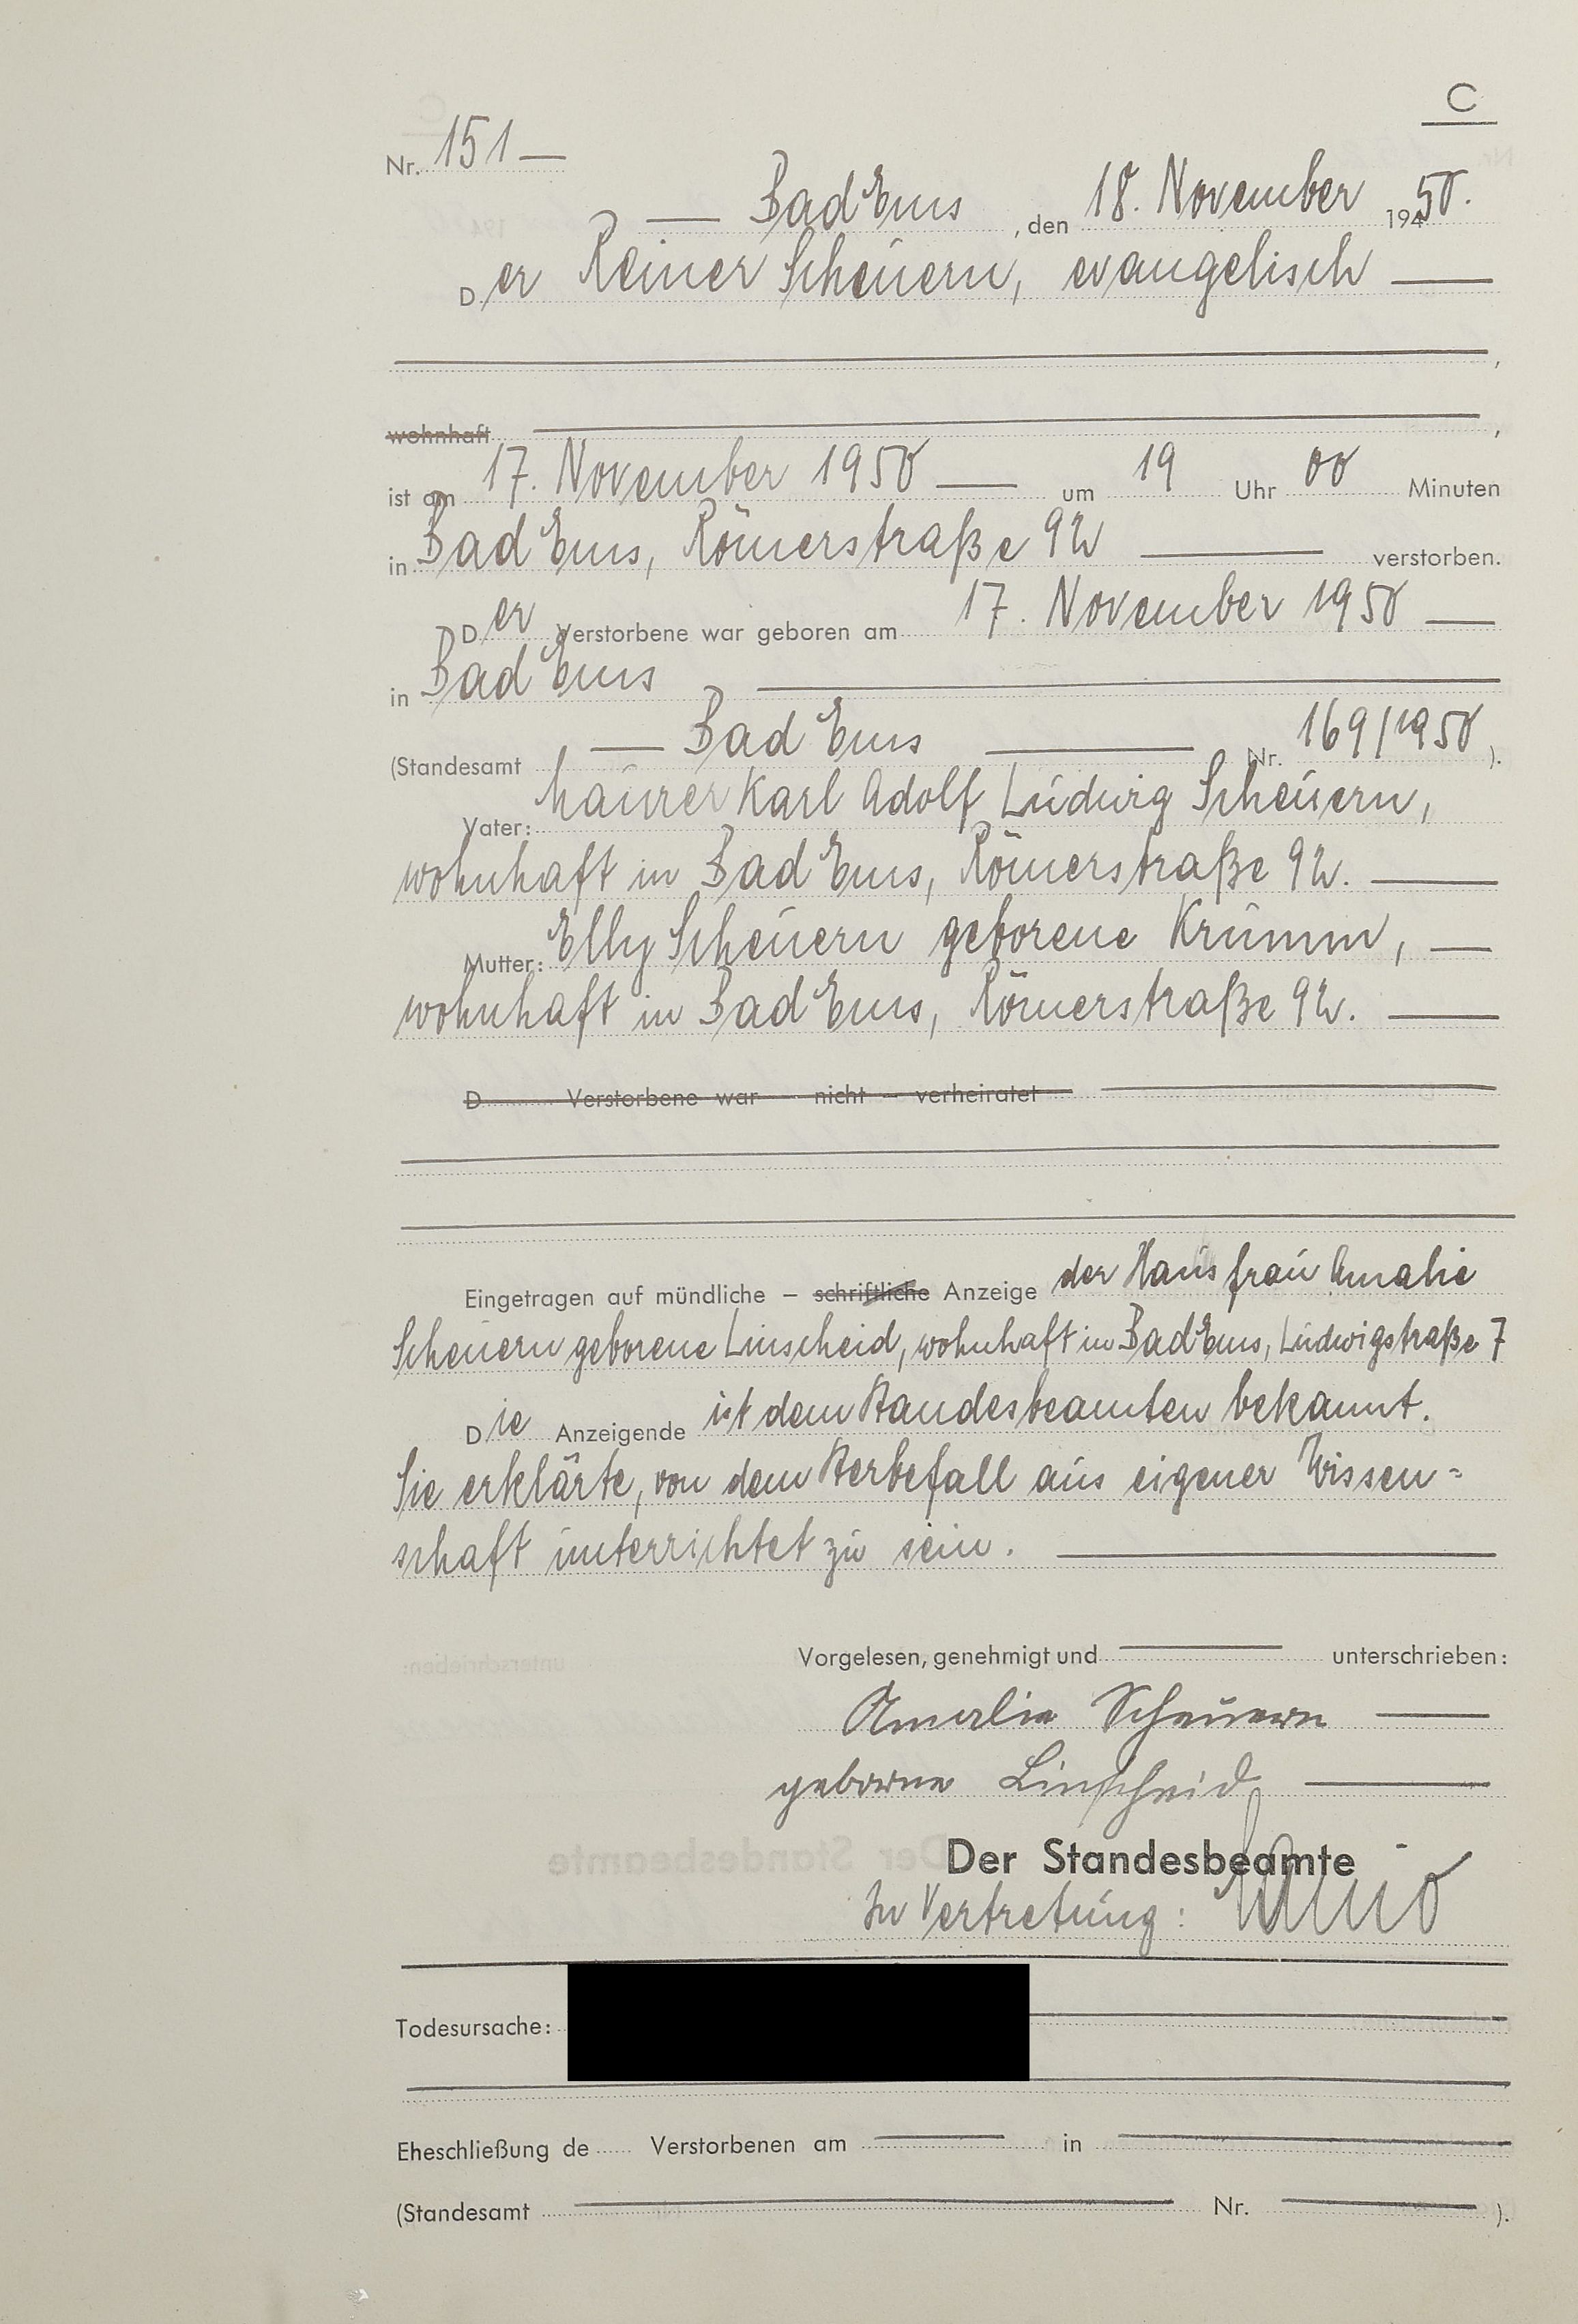 C
Nr. 151 —
— Bad Ems, den 18. November 1950.
Der Reiner Scheuern, evangelisch —
,
wohnhaft ,
ist am 17. November 1950 — um 19 Uhr 00 Minuten
in Bad Ems, Römerstraße 92 — verstorben.
Der Verstorbene war geboren am 17. November 1950 —
in Bad Ems —
(Standesamt — Bad Ems — Nr. 169/1950).
Vater: Maurer Karl Adolf Ludwig Scheuern,
wohnhaft in Bad Ems, Römerstraße 92. —
Mutter: Elly Scheuern geborene Krumm, —
wohnhaft in Bad Ems, Römerstraße 92. —
D Verstorbene war – nicht – verheiratet —
Eingetragen auf mündliche – schriftliche Anzeige der Hausfrau Amalie
Scheuern geborene Linscheid, wohnhaft in Bad Ems, Ludwigstraße 7
Die Anzeigende ist dem Standesbeamten bekannt.
Sie erklärte, von dem Sterbefall aus eigener Wissen=
schaft unterrichtet zu sein. —
Vorgelesen, genehmigt und — unterschrieben:
Amalie Scheuern —
geborne Linscheid —
Der Standesbeamte
In Vertretung:
Todesursache:
Eheschließung de Verstorbenen am — in —
(Standesamt — Nr. — ).